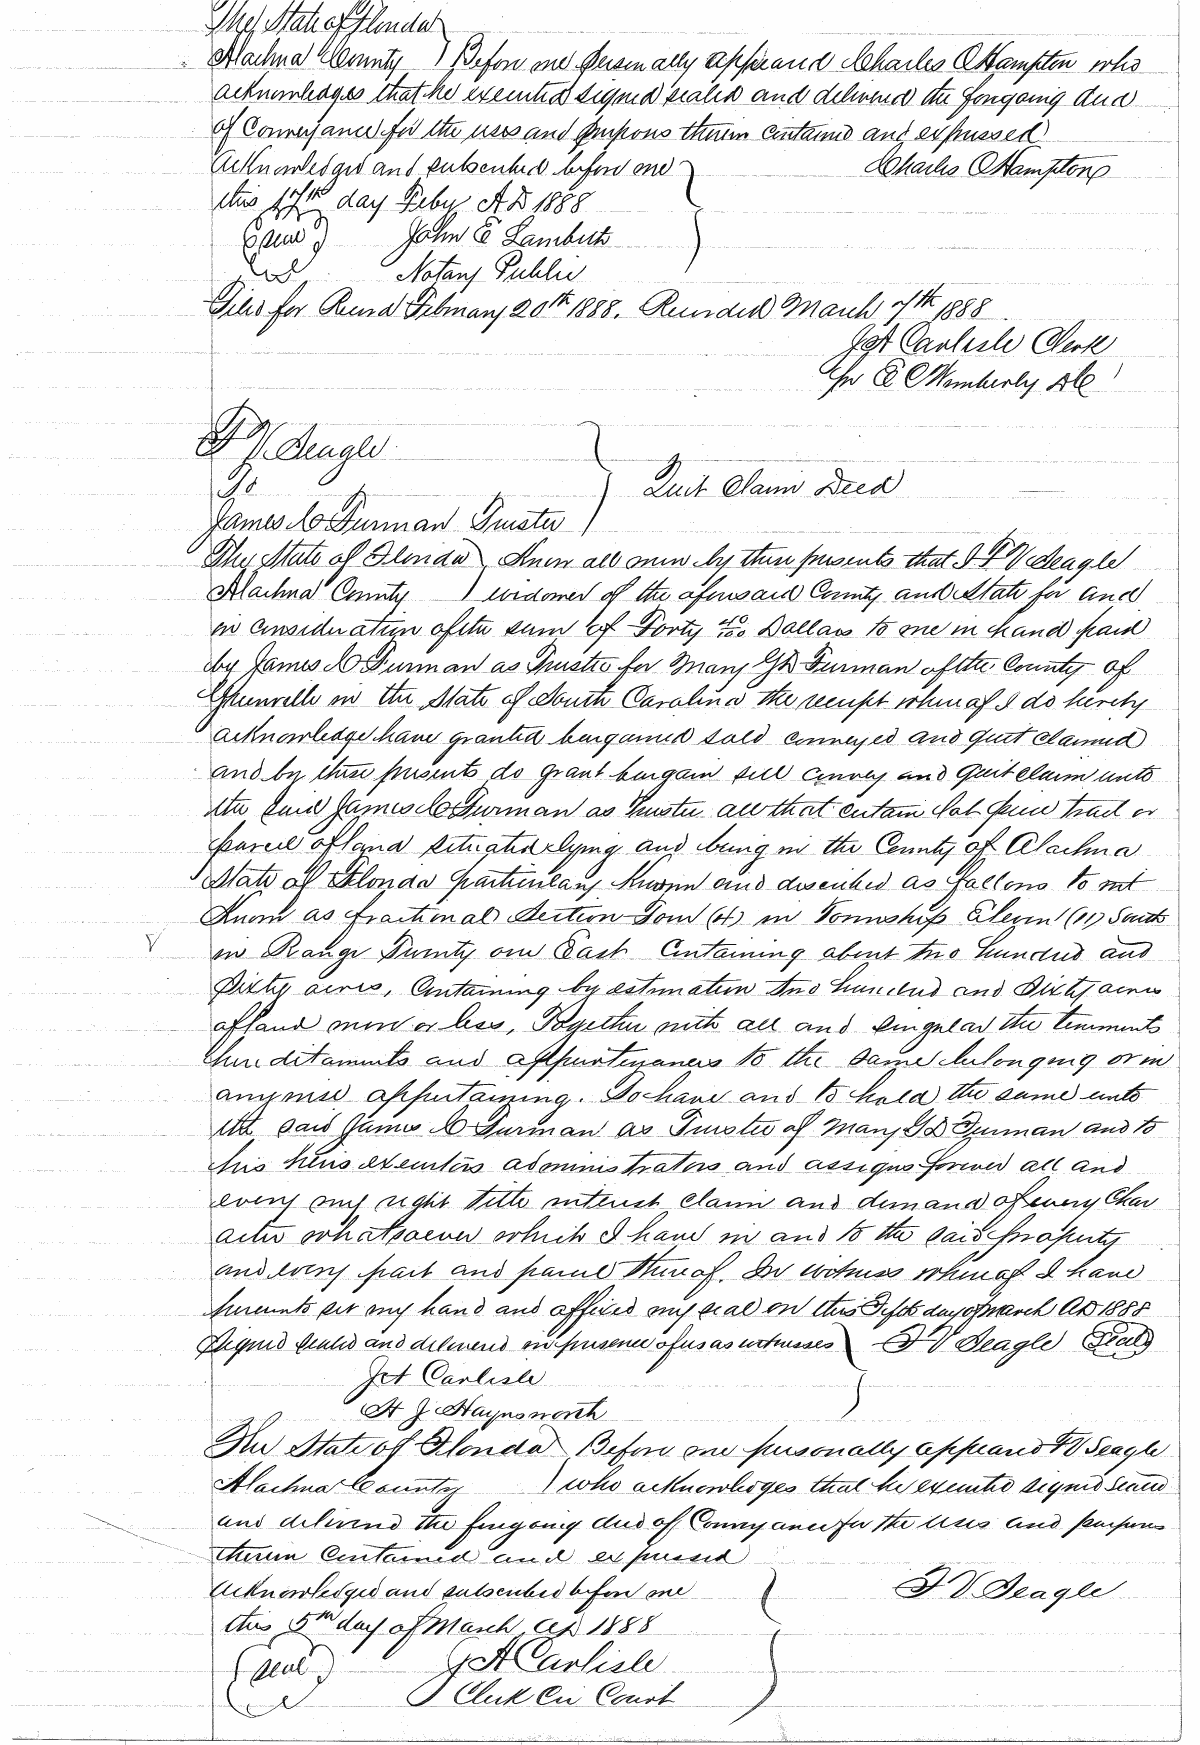 The State of Florida
Alachua County ) Before me personally appeared Charles C Hampton who
acknowledges that he executed signed sealed and delivered the foregoing deed
of Conveyance for the uses and purposes therein contained and expressed
Acknowledged and subscribed before me Charles C Hampton
this 17th day Feby AD 1888
(seal) John E Lambeth
Notary Public
Filed for Record February 20th 1888. Recorded March 7th 1888
J A Carlisle Clerk
Per E C Wimberly DC
F V. Seagle
To
Quit Claim Deed
James C Furman Trustee
The State of Florida Know all men by these presents that I F V Seagle
Alachua County ) widower of the aforesaid County and State for and
in consideration of the sum of Forty 40/100 Dollars to me in hand paid
by James C Furman as Trustee for Mary G D Furman of the County of
Greenville in the State of South Carolina the receipt whereof I do hereby
acknowledge have granted bargained sold conveyed and quit claimed
and by these presents do grant bargain sell convey and Quit claim unto
the said James C Furman as Trustee all that certain lot piece tract or
parcel of land situated lying and being in the County of Alachua
State of Florida particulary known and described as follows to wit
Known as fractional Section Four (4) in Township Eleven (11) South
in Range Twenty one East Containing about two hundred and
Sixty acres, Containing by estimation two hundred and Sixty acres
of land more or less, Together with all and singular the tenements
hereditaments and appurtenances to the same belonging or in
anywise appertaining. To have and to hold the same unto
the said James C Furman as Trustee of Mary G D Furman and to
his heirs executors administrators and assigns forever all and
every my right title interest claim and demand of every Char
acter whatsoever which I have in and to the said property
and every part and parcel thereof. In witness whereof I have
hereunto set my hand and affixed my seal on this Fifth day of March AD 1888
Signed sealed and delivered in presence of us as witnesses F V Seagle (Seal)
J A Carlisle
H J Haynsworth
The State of Florida Before me personally appeared F V Seagle
Alachua County ) who acknowledges that he executed signed sealed
and delivered the foregoing deed of Conveyance for the uses and purposes
therein contained and expressed
Acknowledged and subscribed before me F V. Seagle
this 5th day of March AD 1888
(seal) J A Carlisle
Clerk Cir Court